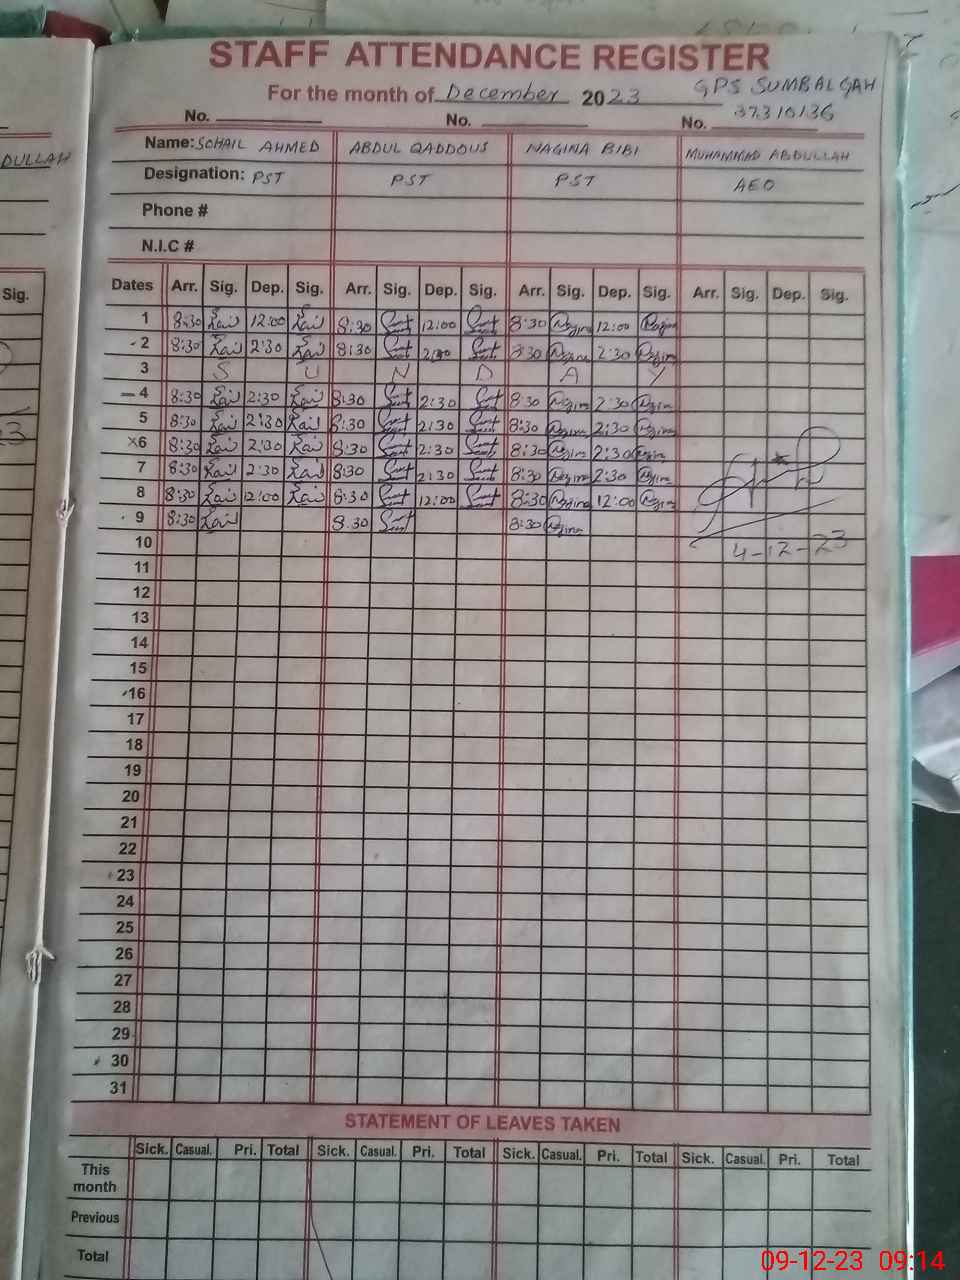 STAFF ATTENDANCE REGISTER
For the month of December 2023 GPS SUMBALGAH
No. No. No. 37310136
DULLAH
Name: SOHAIL AHMED ABDUL QADDOUS NAGINA BIBI MUHAMMAD ABDULLAH
Designation: PST PST PST AEO
Phone #
N.I.C #
Sig.
Dates Arr. Sig. Dep. Sig. Arr. Sig. Dep. Sig. Arr. Sig. Dep. Sig. Arr. Sig. Dep. Sig.
1 8:30 12:00 8:30 12:00 8:30 12:00
2 8:30 2:30 8:30 2:30 8:30 2:30
3 S U N D A Y
4 8:30 2:30 8:30 2:30 8:30 2:30
5 8:30 2:30 8:30 2:30 8:30 2:30
6 8:30 2:30 8:30 2:30 8:30 2:30
7 8:30 2:30 8:30 2:30 8:30 2:30
8 8:30 12:00 8:30 12:00 8:30 12:00
9 8:30 8:30 8:30
10 4-12-23
11
12
13
14
15
16
17
18
19
20
21
22
23
24
25
26
27
28
29
30
31
STATEMENT OF LEAVES TAKEN
Sick. Casual. Pri. Total Sick. Casual. Pri. Total Sick. Casual. Pri. Total Sick. Casual. Pri. Total
This month
Previous
Total
09-12-23 09:14